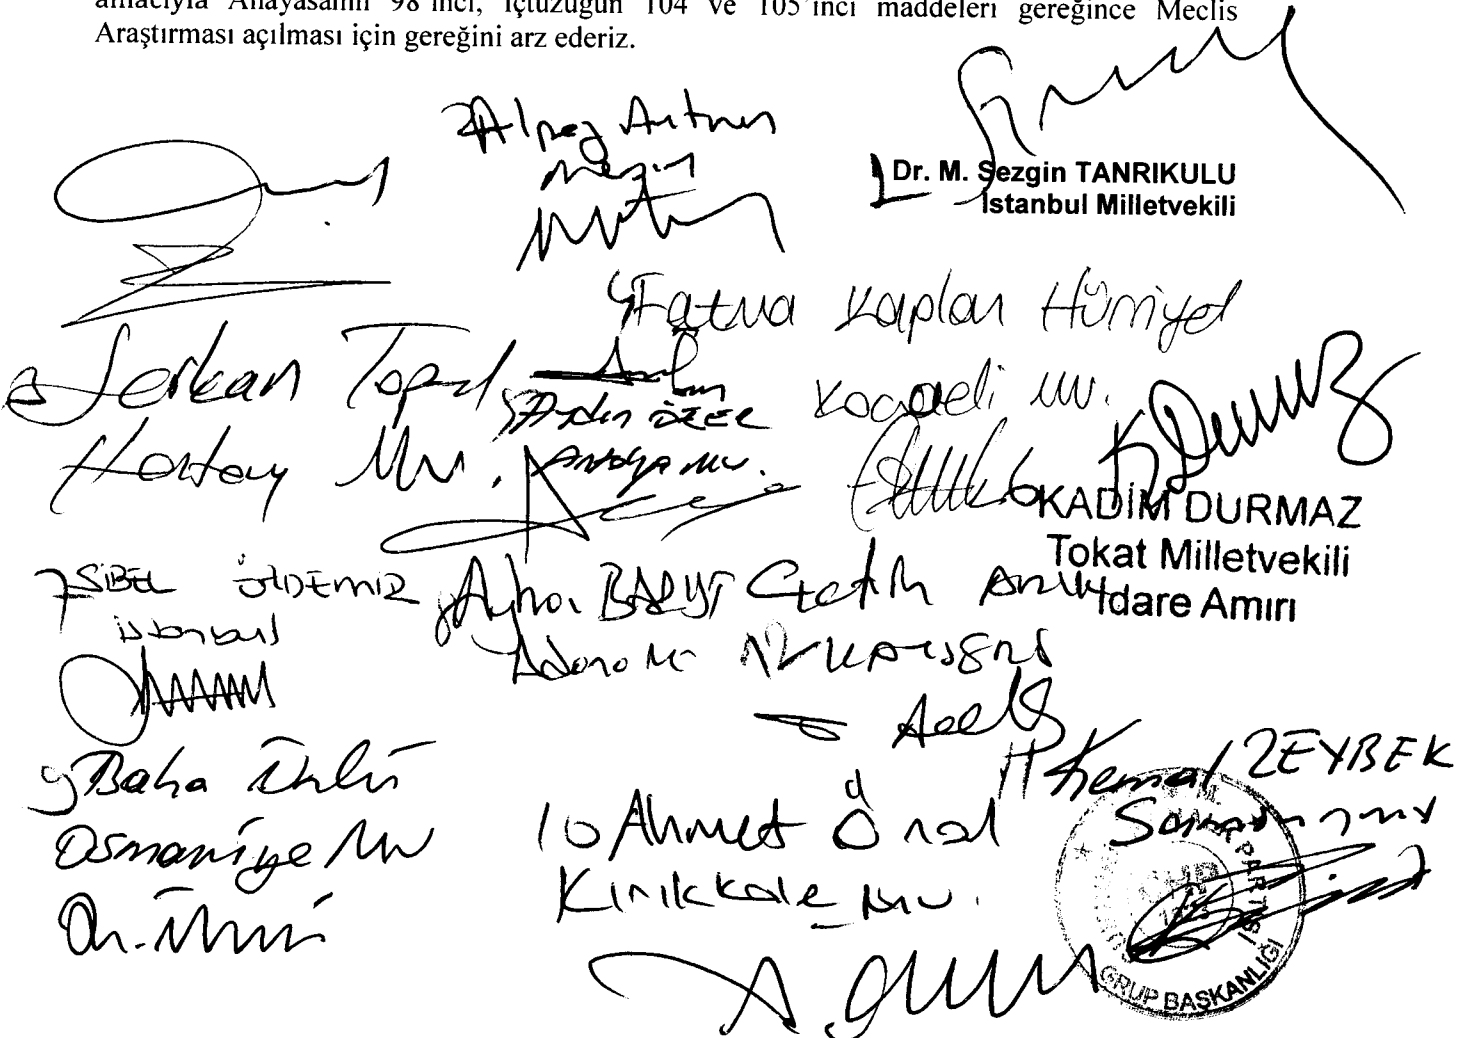 amacıyla Anayasanın 98'inci, İçtüzüğün 104 ve 105'inci maddeleri gereğince Meclis
Araştırması açılması için gereğini arz ederiz.
2) Alpay Antmen
Mersin
1 Dr. M. Sezgin TANRIKULU
İstanbul Milletvekili
4) Fatma Kaplan Hürriyet
Kocaeli Mv.
Serkan Topal
Hatay Mv.
5) Aydın ÖZER
Antalya Mv.
6 KADİM DURMAZ
Tokat Milletvekili
İdare Amiri
7 SİBEL ÖZDEMİR
İstanbul
Ayhan BARUT
Adana Mv
Çetin Arık
Kayseri
9) Baha Ünlü
Osmaniye Mv
10 Ahmet Önal
Kırıkkale Mv.
11 Kemal ZEYBEK
Samsun
PARTİSİ
GRUP BAŞKANLIĞI